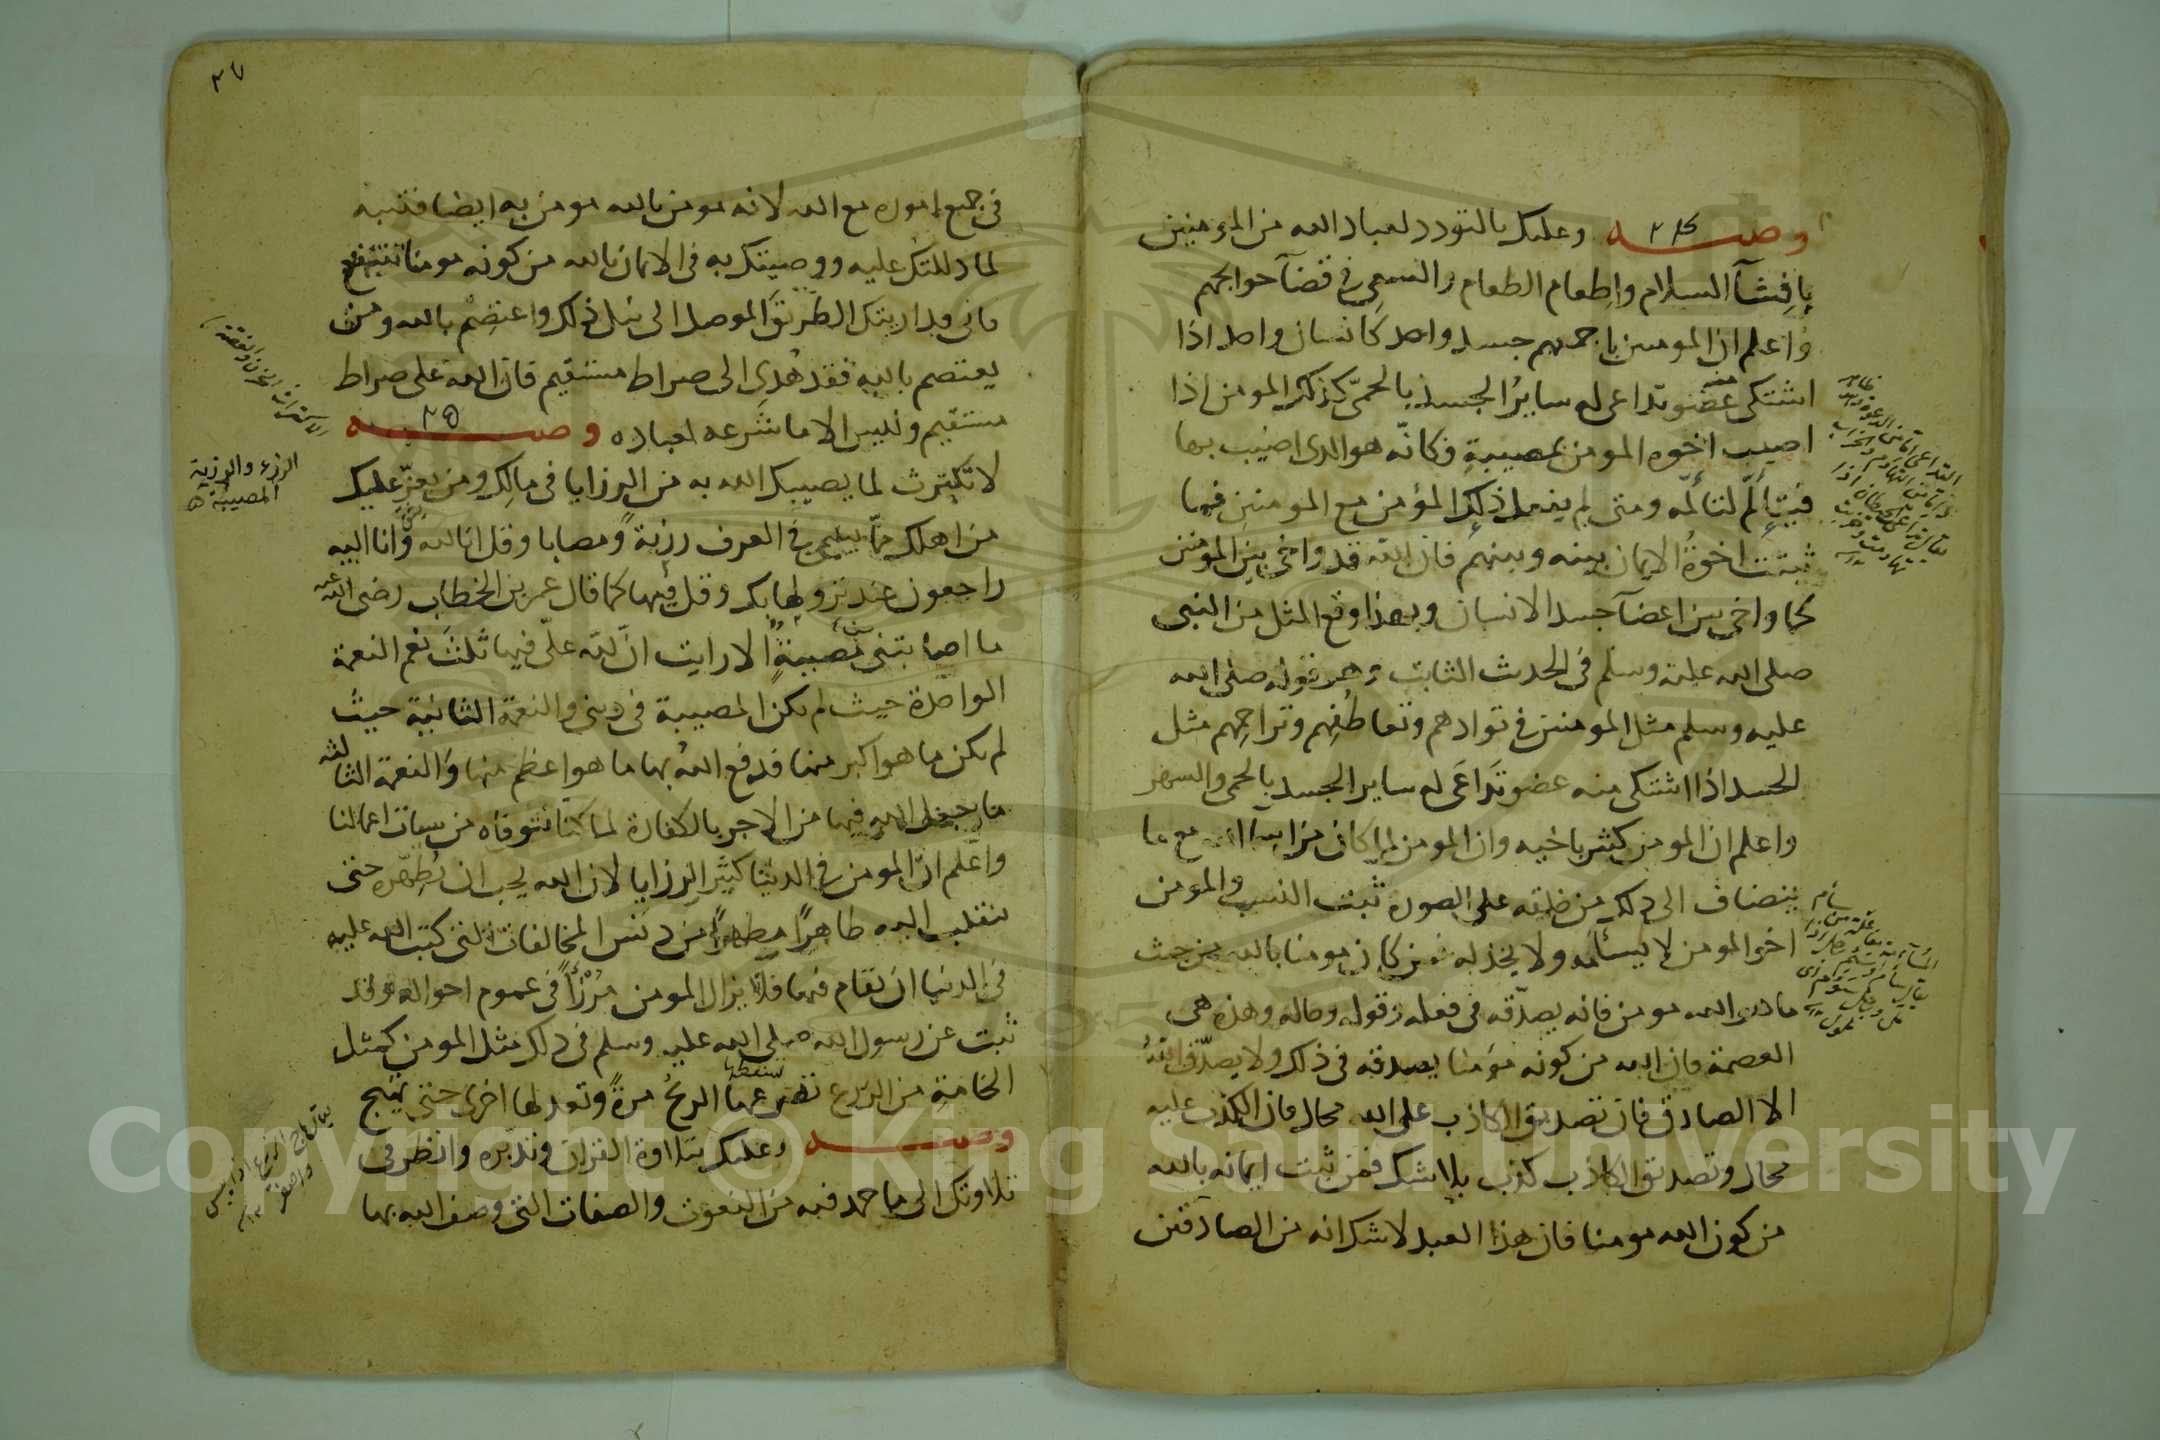 وصيه ٢٤ وعليك بالتودد لعباد الله من المؤمنين
بافشآ السلام واطعام الطعام والسعى فى قضآ حوايجهم
واعلم ان المومنين باجمعهم جسد واحد كانسان واحد اذا
اشتكى منه عضو تداعى له ساير الجسد بالحمى كذلك المومن اذا
اصيب اخوه المومن بمصيبة فكانه هو الدى اصيب بها
فيتألم لتألمه ومتى لم يفعل ذلك المؤمن مع المومنين فيما
ثبتت اخوة الايمان بينه وبينهم فان الله قد واخى بين المؤمنين
كما واخى بين اعضآ جسد الانسان وبهذا وقع المثل من النبى
صلى الله عليه وسلم فى الحديث الثابت وهو قوله صلى الله
عليه وسلم مثل المومنين فى توادهم وتعاطفهم وتراحمهم مثل
الجسد اذا اشتكى منه عضو تداعى له ساير الجسد بالحمى والسهر
واعلم ان المومن كثير باخيه وان المومن لما كان من اسمآ الله مع ما
ينضاف الى ذلك من خلقه على الصورة ثبت النسب والمومن
اخو المومن لا يسلمه ولا يخذله فمن كان مومنا بالله من حيث
ما هو الله مومن فانه يصدقه فى فعله وقوله وحاله وهذه هى
العصمة فان الله من كونه مؤمنا يصدقه فى ذلك ولا يصدق الله
الا الصادق فان تصديق الكاذب على الله محال فان الكذب عليه
محال وتصديق الكاذب كذب بلا شك فمن ثبت ايمانه بالله
من كون الله مومنا فان هذا العبد لا شك انه من الصادقين
فى جميع اموره مع الله لانه مومن بالله مومن به ايضا فتنبه
لما دللتك عليه ووصيتك به فى الايمان بالله من كونه مومنا تنتفع
فانى قد اريتك الطريق الموصل الى نيل ذلك واعتصم بالله ومن
يعتصم بالله فقد هدى الى صراط مستقيم فان الله على صراط
مستقيم وليس الا ما شرعه لعباده وصيه ٢٥
لا تكترث لما يصيبك الله به من الرزايا فى مالك ومن يعز عليك
من اهلك مما يسمى فى العرف رزية ومصابا وقل انا لله وانا اليه
راجعون عند نزولها بك وقل فيها كما قال عمر بن الخطاب رضى الله عنه
ما اصابتنى من مصيبة الا رايت ان لله على فيها ثلث نعم النعمة
الواحدة حيث لم تكن المصيبة فى دينى والنعمة الثانية حيث
لم يكن ما هو اكبر منها فدفع الله بها ما هو اعظم منها والنعمة الثالثه
ما جعل الله فيها من الاجر بالكفارة لما كنا نتوقاه من سيات اعمالنا
واعلم ان المومن فى الدنيا كثير الرزايا لان الله يحب ان يطهره حتى
ينقلب اليه طاهرا مطهرا من دنس المخالفات التى كتب الله عليه
فى الدنيا ان يقام فيها فلا يزال المومن مرزأ فى عموم احواله وقد
ثبت عن رسول الله صلى الله عليه وسلم فى ذلك مثل المومن كمثل
الخامة من الزرع تصرعها الريح مرة وتعدلها اخرى حتى تهيج
وصيه وعليك بتلاوة القران وتدبره وانظر فى
تلاوتك الى ما حمد فيه من النعوت والصفات التى وصف الله بها
الرزء والرزية
المصيبة
Copyright © King Saud University